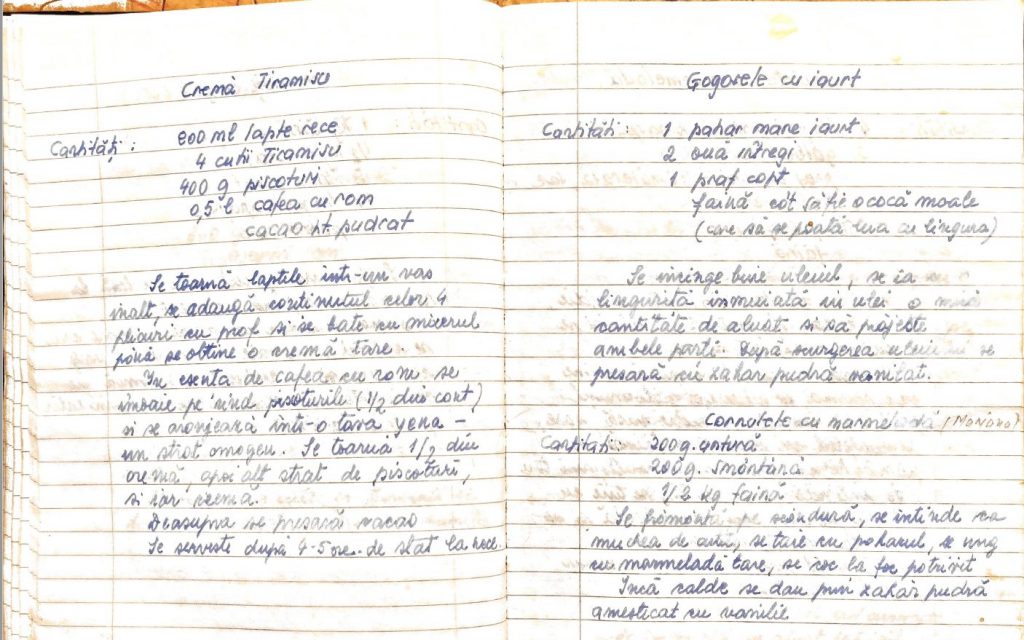 Cremă Tiramisu
Cantități : 800 ml lapte rece
4 cutii Tiramisu
400 g piscoturi
0,5 l cafea cu rom
cacao pt. pudrat
Se toarnă laptele într-un vas
inalt, se adaugă continutul celor 4
plicuri cu praf si se bate cu mixerul
până se obtine o cremă tare.
In esenta de cafea cu rom se
imoaie pe rind piscoturile (1/2 din cant)
si se aranjează intr-o tava yena -
un strat omogen. Se toarnă 1/2 din
cremă, apoi alt strat de piscoturi,
si iar crema.
Deasupra se presară cacao
Se serveste după 4-5 ore de stat la rece.
Gogosele cu iaurt
Cantităti : 1 pahar mare iaurt.
2 ouă intregi
1 praf copt
faină cât să fie o cocă moale
(care să se poată lua cu lingura)
Se incinge bine uleiul, se ia cu o
lingurită inmuiată in ulei o mică
cantitate de aluat si să prăjeste
ambele parti. După scurgerea uleiului se
presară cu zahar pudră vanilat.
Cornulete cu marmeladă
Cantităti : 200g. untură
200g. smântână
1/2 kg faină
Se frământă pe scândură, se intinde ca
muchea de cutit, se taie cu paharul, se ung
cu marmeladă tare, se coc la foc potrivit
Incă calde se dau prin zahăr pudră
amesticat cu vanilie